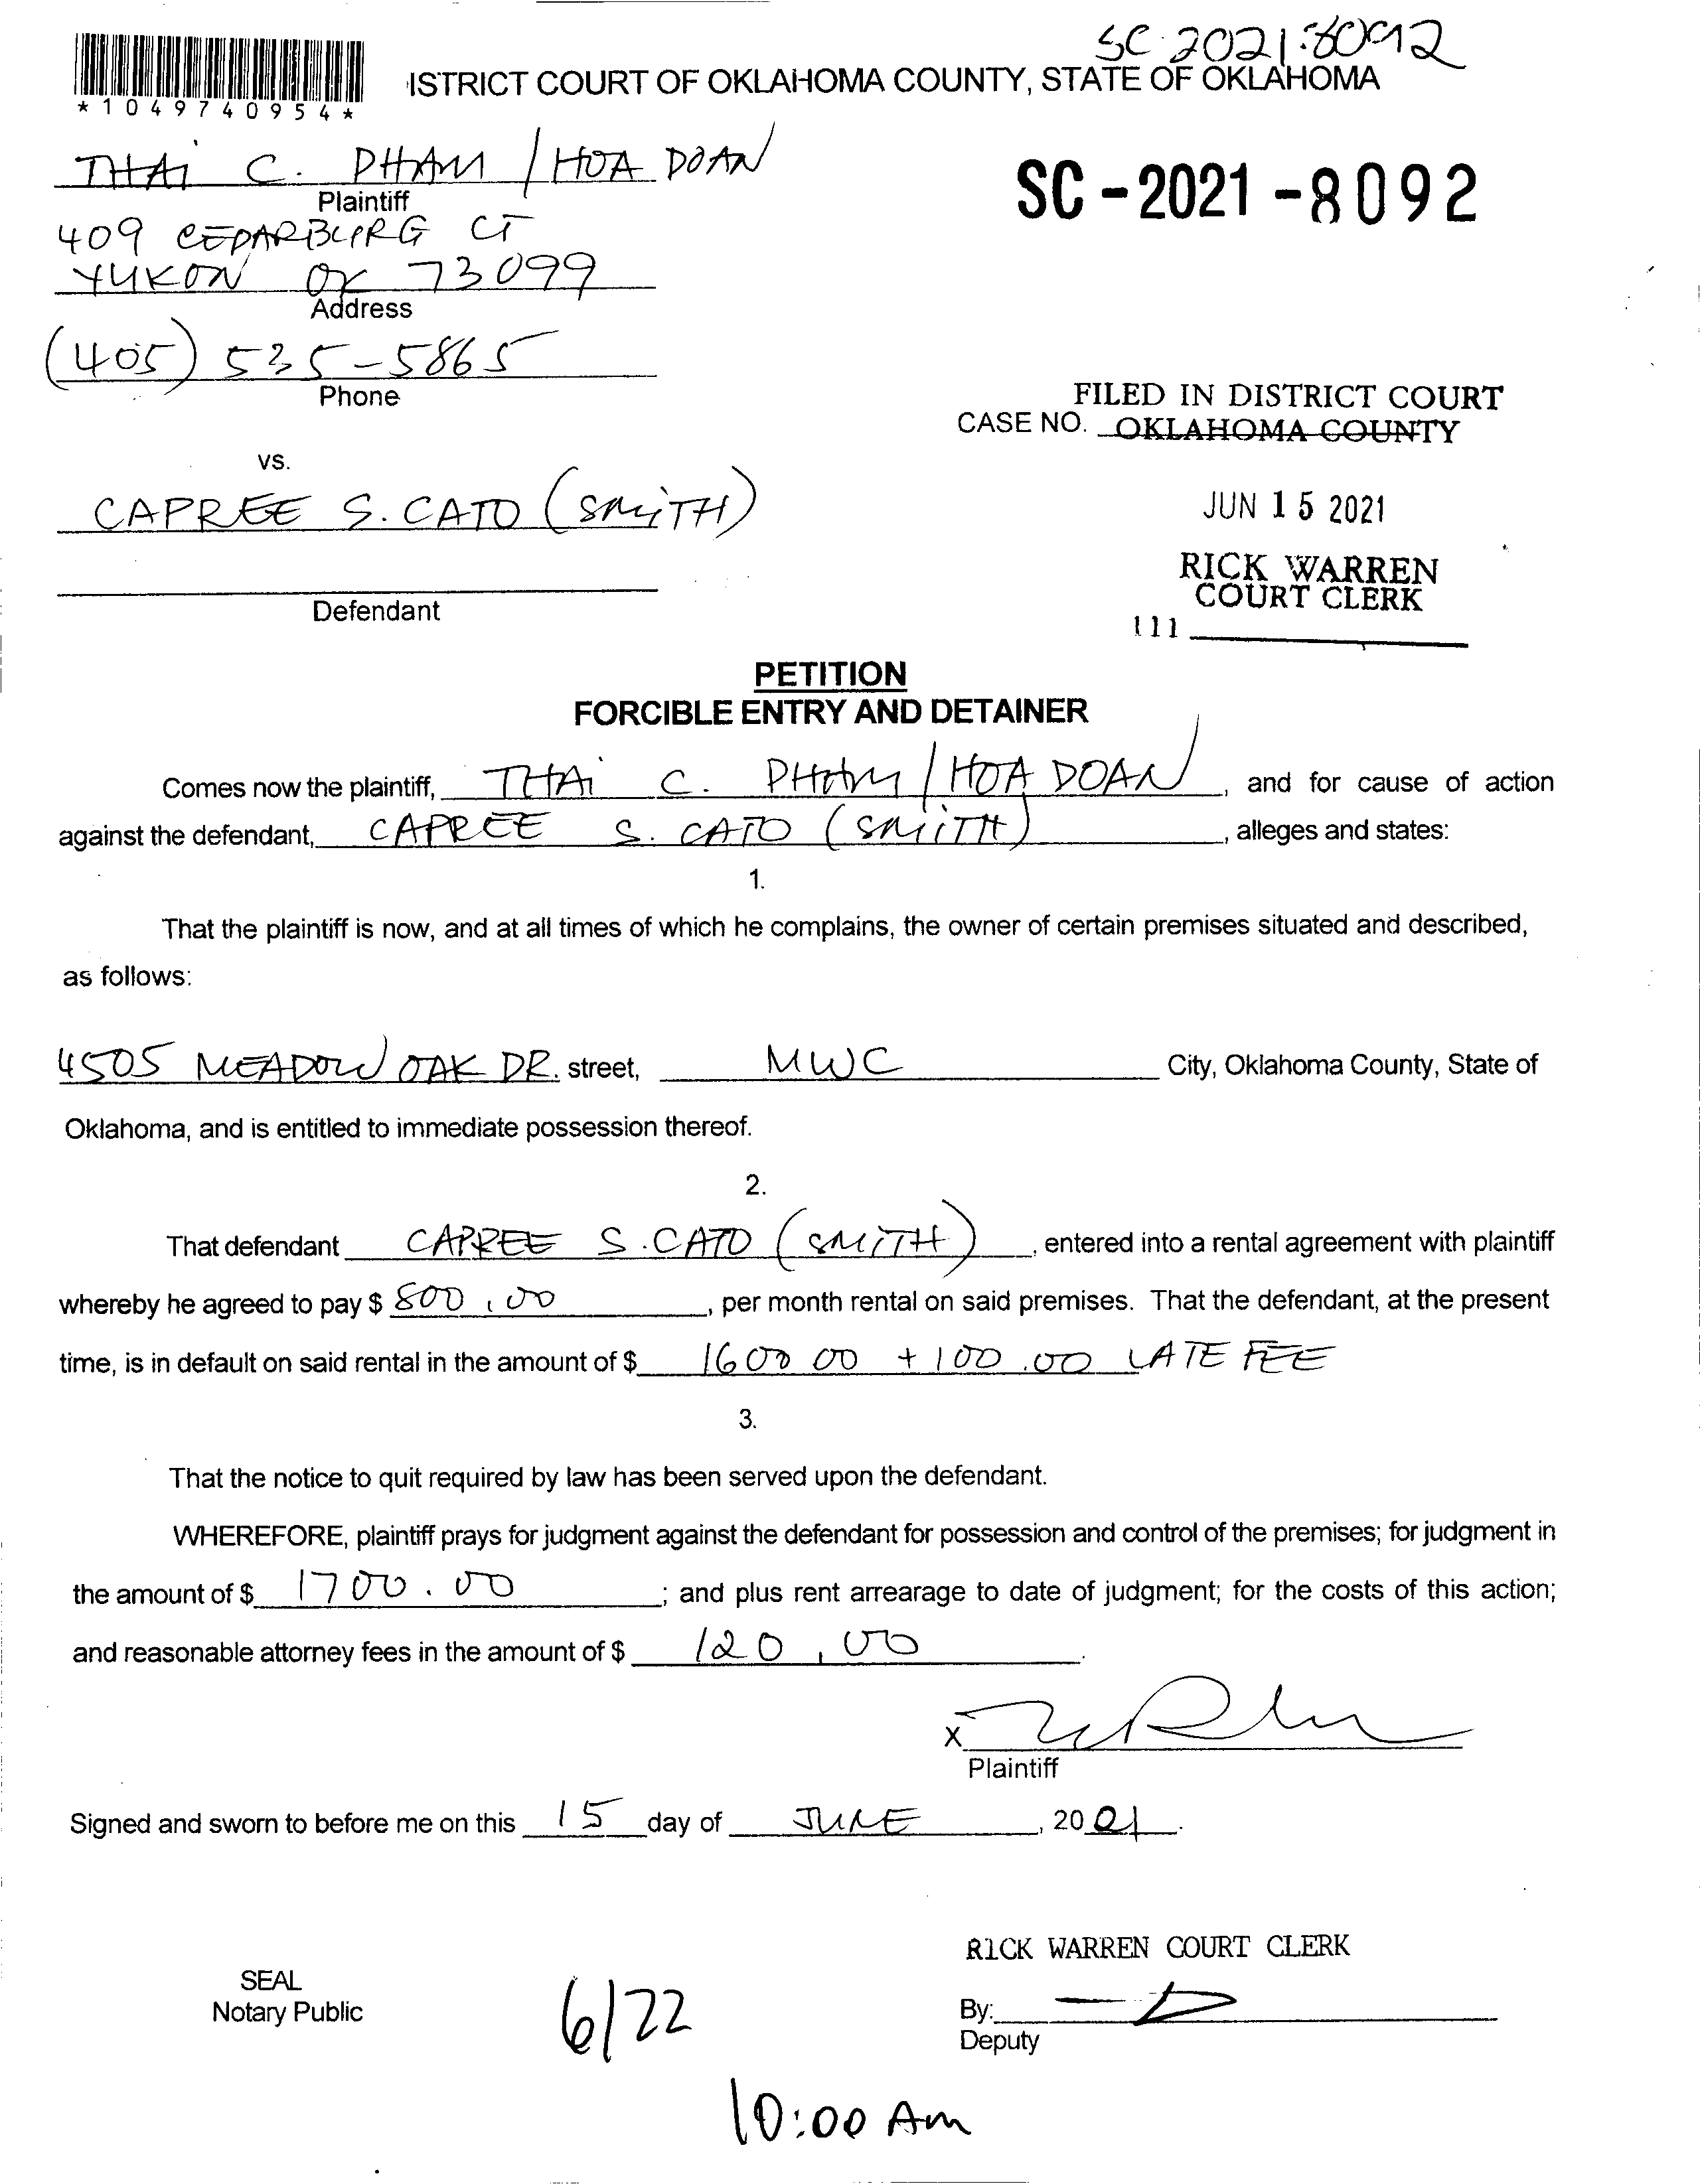 SC-2021-8092
ISTRICT COURT OF OKLAHOMA COUNTY, STATE OF OKLAHOMA
*1049740954*
THAI C. PHAM / HOA DOAN
Plaintiff
SC-2021-8092
409 CEDARBURG CT
YUKON OK 73099
Address
(405) 535-5865
Phone
FILED IN DISTRICT COURT
CASE NO. OKLAHOMA COUNTY
vs.
CAPREE S. CATO (SMITH)
JUN 15 2021
RICK WARREN
COURT CLERK
Defendant
111
PETITION
FORCIBLE ENTRY AND DETAINER
Comes now the plaintiff, THAI C. PHAM / HOA DOAN, and for cause of action
against the defendant, CAPREE S. CATO (SMITH), alleges and states:
1.
That the plaintiff is now, and at all times of which he complains, the owner of certain premises situated and described,
as follows:
4505 MEADOW OAK DR. street, MWC City, Oklahoma County, State of
Oklahoma, and is entitled to immediate possession thereof.
2.
That defendant CAPREE S. CATO (SMITH), entered into a rental agreement with plaintiff
whereby he agreed to pay $ 800.00, per month rental on said premises. That the defendant, at the present
time, is in default on said rental in the amount of $ 1600 00 + 100.00 LATE FEE
3.
That the notice to quit required by law has been served upon the defendant.
WHEREFORE, plaintiff prays for judgment against the defendant for possession and control of the premises; for judgment in
the amount of $ 1700.00; and plus rent arrearage to date of judgment; for the costs of this action;
and reasonable attorney fees in the amount of $ 120.00.
X
Plaintiff
Signed and sworn to before me on this 15 day of JUNE, 2021.
RICK WARREN COURT CLERK
SEAL
Notary Public
6/22
By:
Deputy
10:00 Am